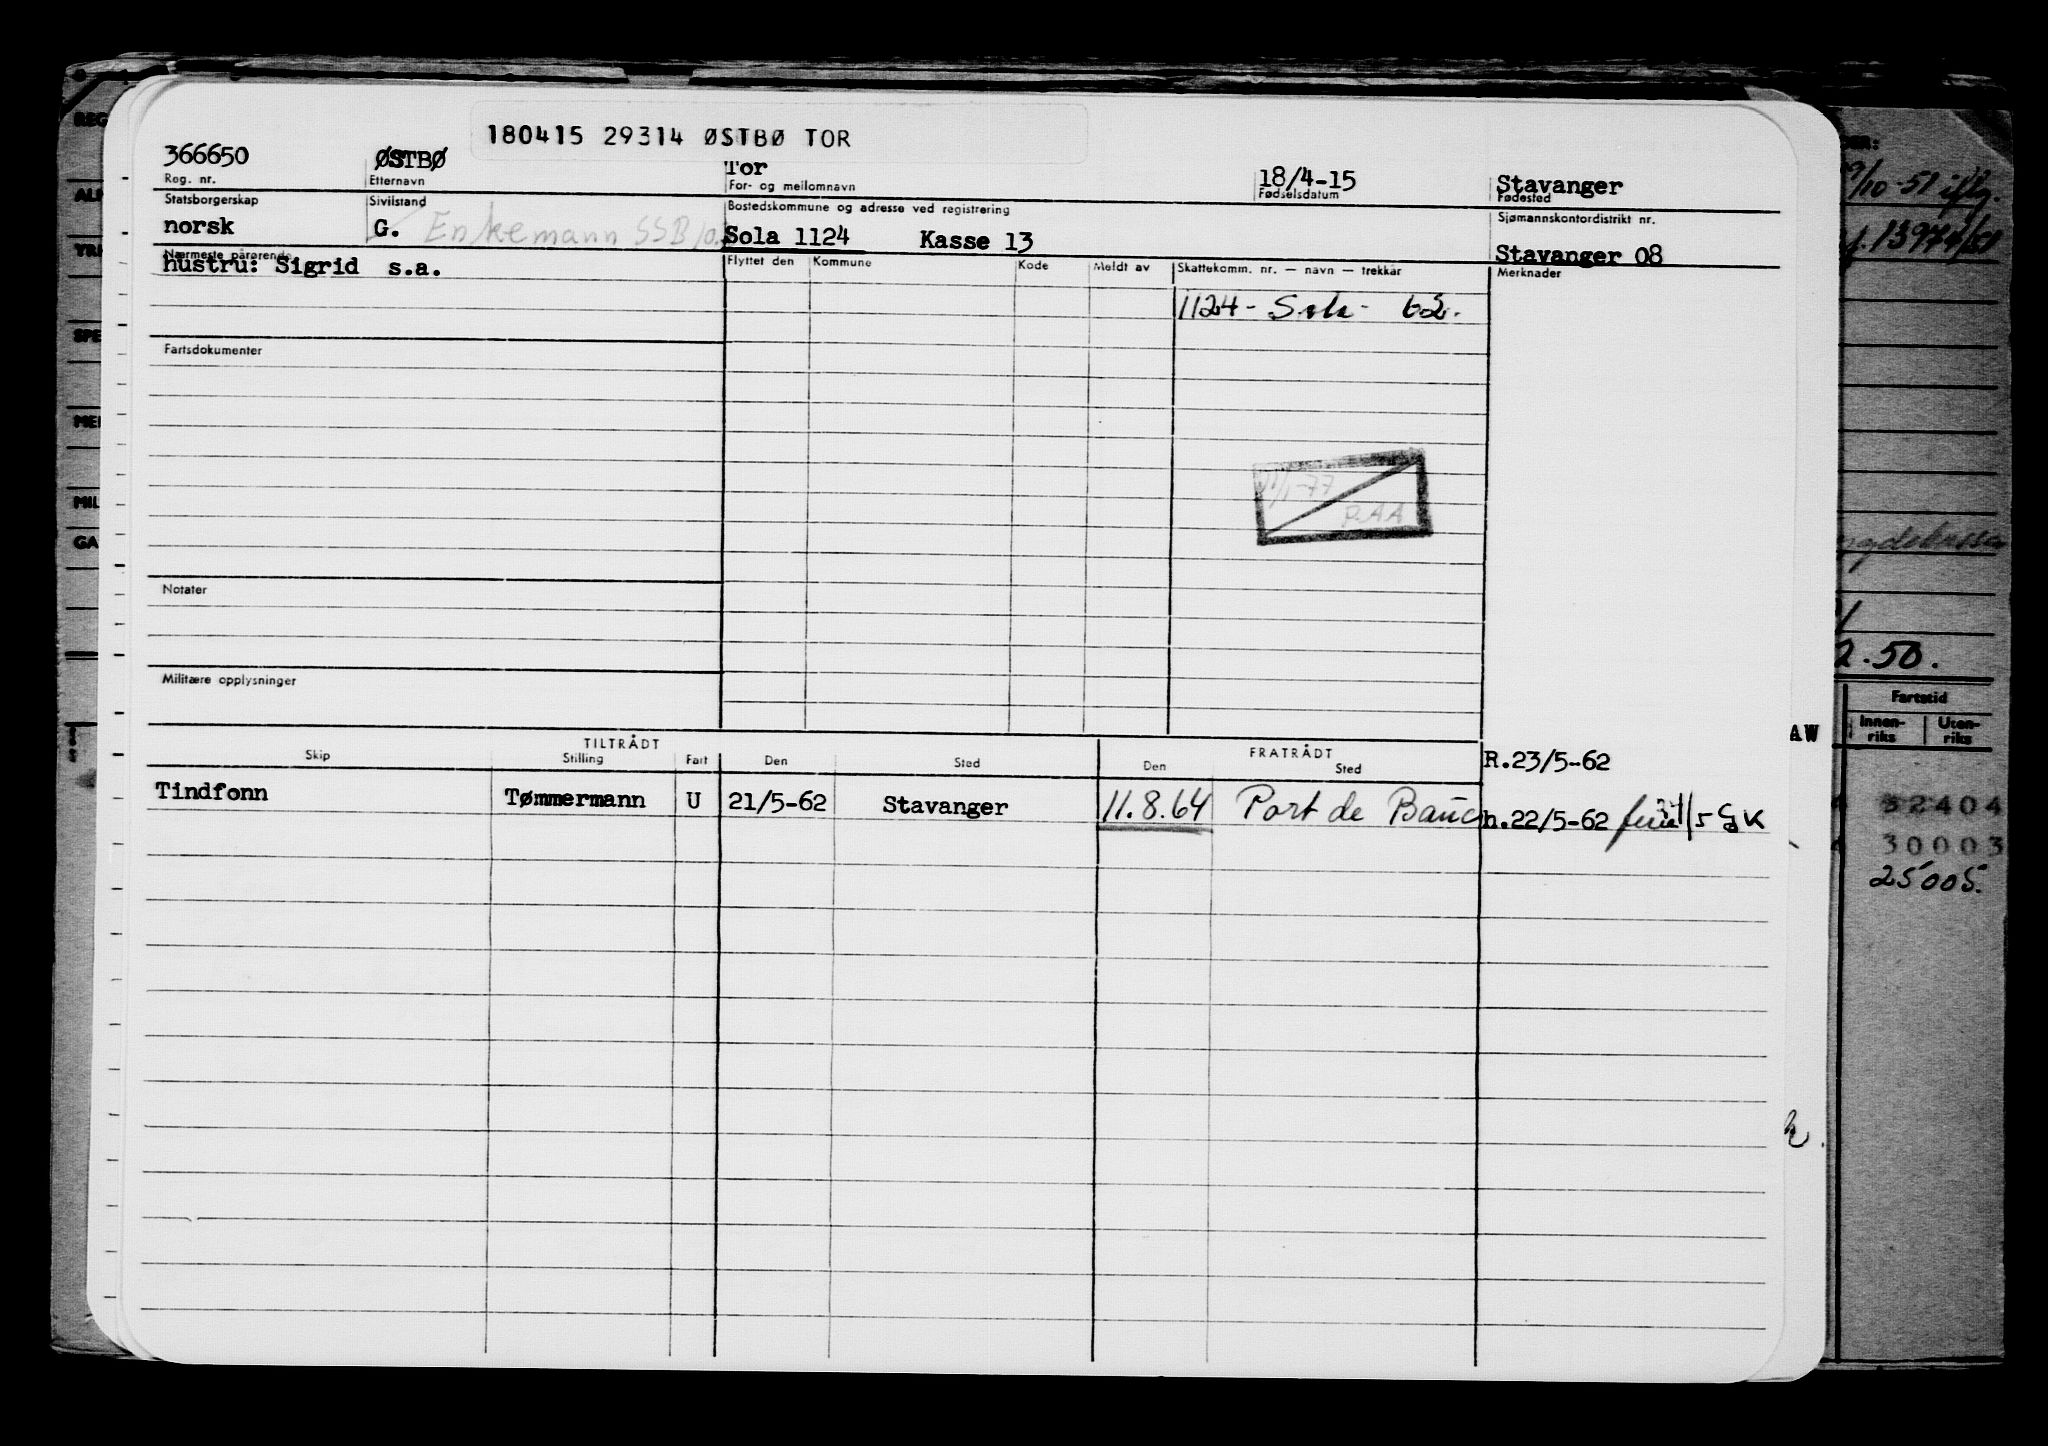 180415 29314 ØSTBØ TOR
366650 ØSTBØ Tor 18/4-15 Stavanger
Reg. nr. Etternavn For- og mellomnavn Fødselsdatum Fødested
Statsborgerskap Sivilstand Bostedskommune og adresse ved registrering Sjømannskontordistrikt nr.
norsk G. Enkemann SSB Sola 1124 Kasse 13 Stavanger 08
Nærmeste pårørende Flyttet den Kommune Kode Meldt av Skattekomm. nr. — navn — trekkår Merknader
hustru: Sigrid s.a.
1124 - Sola - 62.
Fartsdokumenter
1/1-77
P.AA
Notater
Militære opplysninger
TILTRÅDT FRATRÅDT
Skip Stilling Fart Den Sted Den Sted R.23/5-62
Tindfonn Tømmermann U 21/5-62 Stavanger 11.8.64 Port de Bouc h.22/5-62 /5 GK
AW
REG
ALM
SPE
MEI
MIL
GA
9/10-51
13974/51
2.50.
Fartstid
Innen-
riks
Uten-
riks
32404
30003
25005.